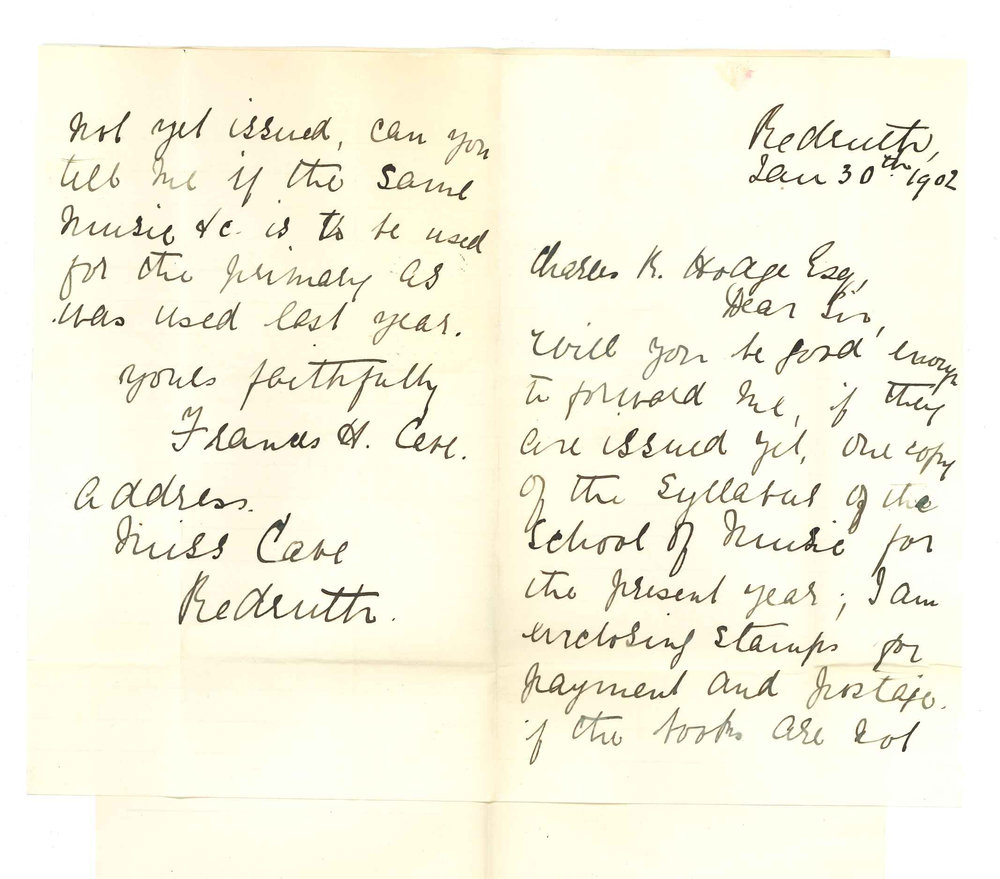 Redruth,
Jan 30th 1902
Charles R. Hodge Esq,
Dear Sir,
Will you be good enough
to forward me, if they
are issued yet, one copy
of the Syllabus of the
School of Music for
the present year; I am
enclosing stamps for
payment and postage.
if the books are not
not yet issued, can you
tell me if the same
Music &c. is to be used
for the primary as
was used last year.
yours faithfully
Frances H. Cave.
Address.
Miss Cave
Redruth.